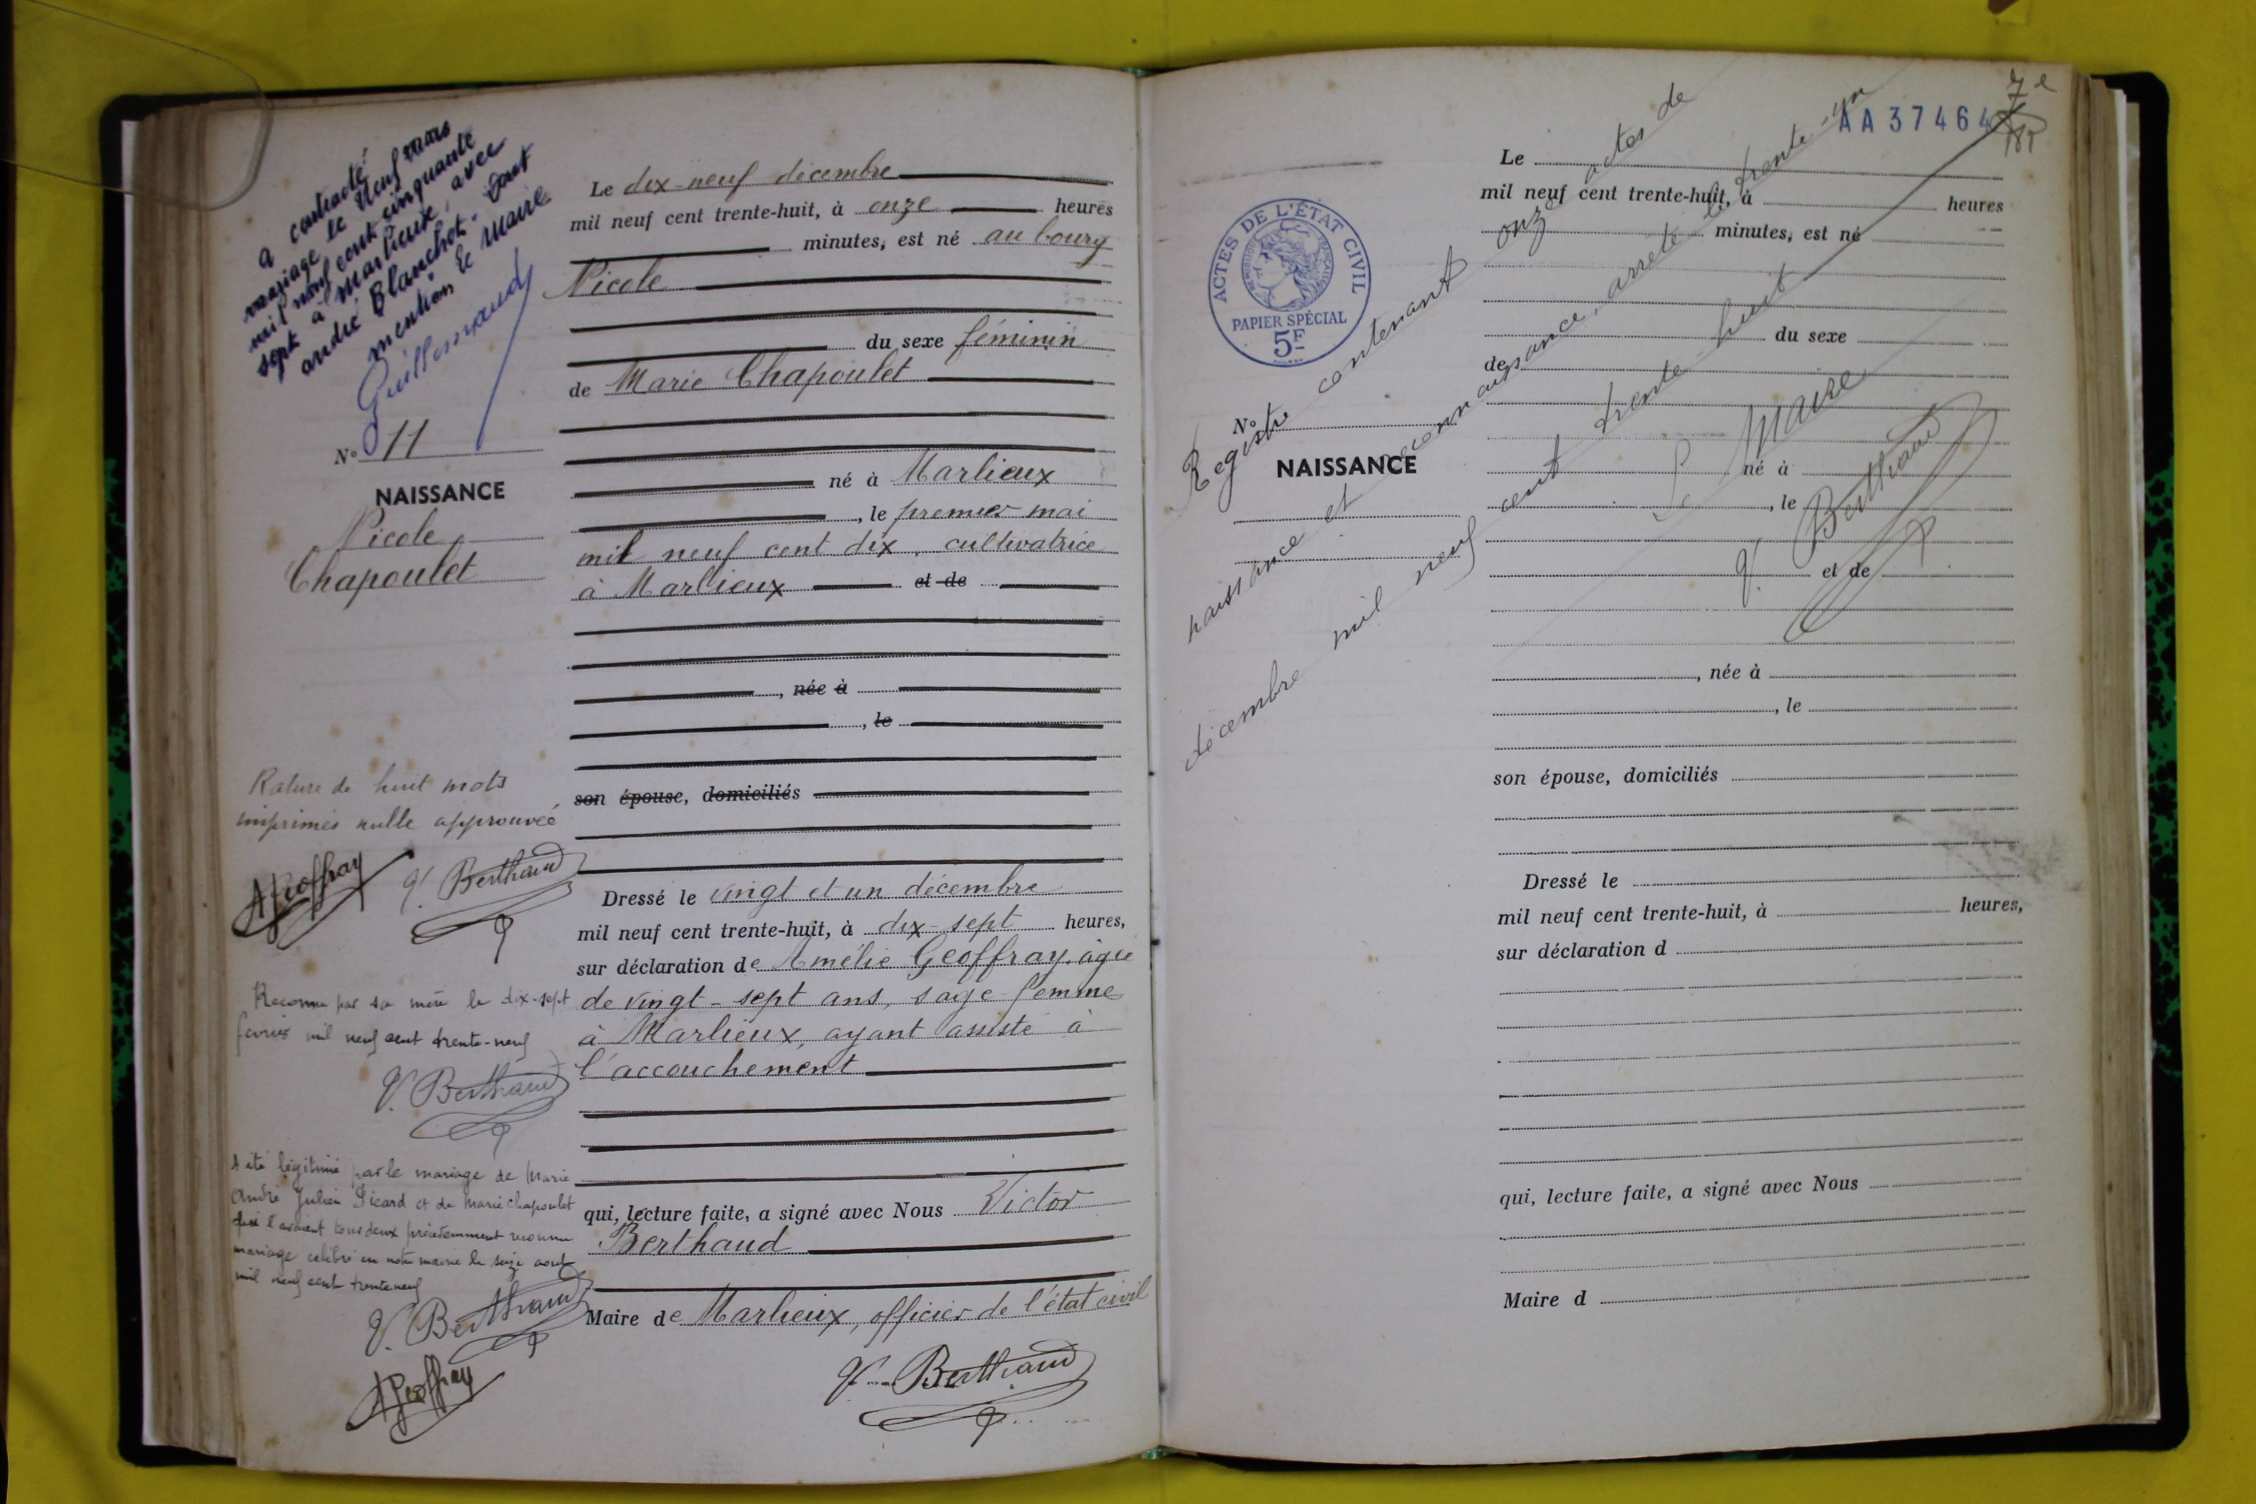 a contracté
mariage le neuf mars
mil neuf cent cinquante
sept à Marlieux, avec
andré Blanchet. Dont
mention Le Maire
Guillermaud
N° 11
NAISSANCE
Nicole
Chapoulet
Rature de huit mots
imprimés nulle approuvée
AGeoffray V. Berthaud
Reconnu par sa mère le dix-sept
février mil neuf cent trente-neuf
V. Berthaud
A été légitimé par le mariage de Marie
André Julien Picard et de Marie Chapoulet
qui l'avaient tous deux précédemment reconnu
mariage célébré en notre mairie le seize aout
mil neuf cent trente neuf
V. Berthaud
AGeoffray
Le dix-neuf décembre
mil neuf cent trente-huit, à onze heures
minutes, est né au bourg
Nicole
du sexe féminin
de Marie Chapoulet
né à Marlieux
, le premier mai
mil neuf cent dix, cultivatrice
à Marlieux et de
, née à
, le
son épouse, domiciliés
Dressé le vingt et un décembre
mil neuf cent trente-huit, à dix-sept heures,
sur déclaration de Amélie Geoffray, âgée
de vingt-sept ans, sage-femme
à Marlieux, ayant assisté à
l'accouchement
qui, lecture faite, a signé avec Nous Victor
Berthaud
Maire de Marlieux, officier de l'état civil
V. Berthaud
7e
AA37464
ACTES DE L'ÉTAT CIVIL
PAPIER SPÉCIAL
5F
N°
NAISSANCE
Registre contenant onze actes de
naissance et reconnaissance, arrêté le trente-un
décembre mil neuf cent trente huit
Le Maire
V. Berthaud
Le
mil neuf cent trente-huit, à heures
minutes, est né
du sexe
de
né à
, le
et de
, née à
, le
son épouse, domiciliés
Dressé le
mil neuf cent trente-huit, à heures,
sur déclaration d
qui, lecture faite, a signé avec Nous
Maire d